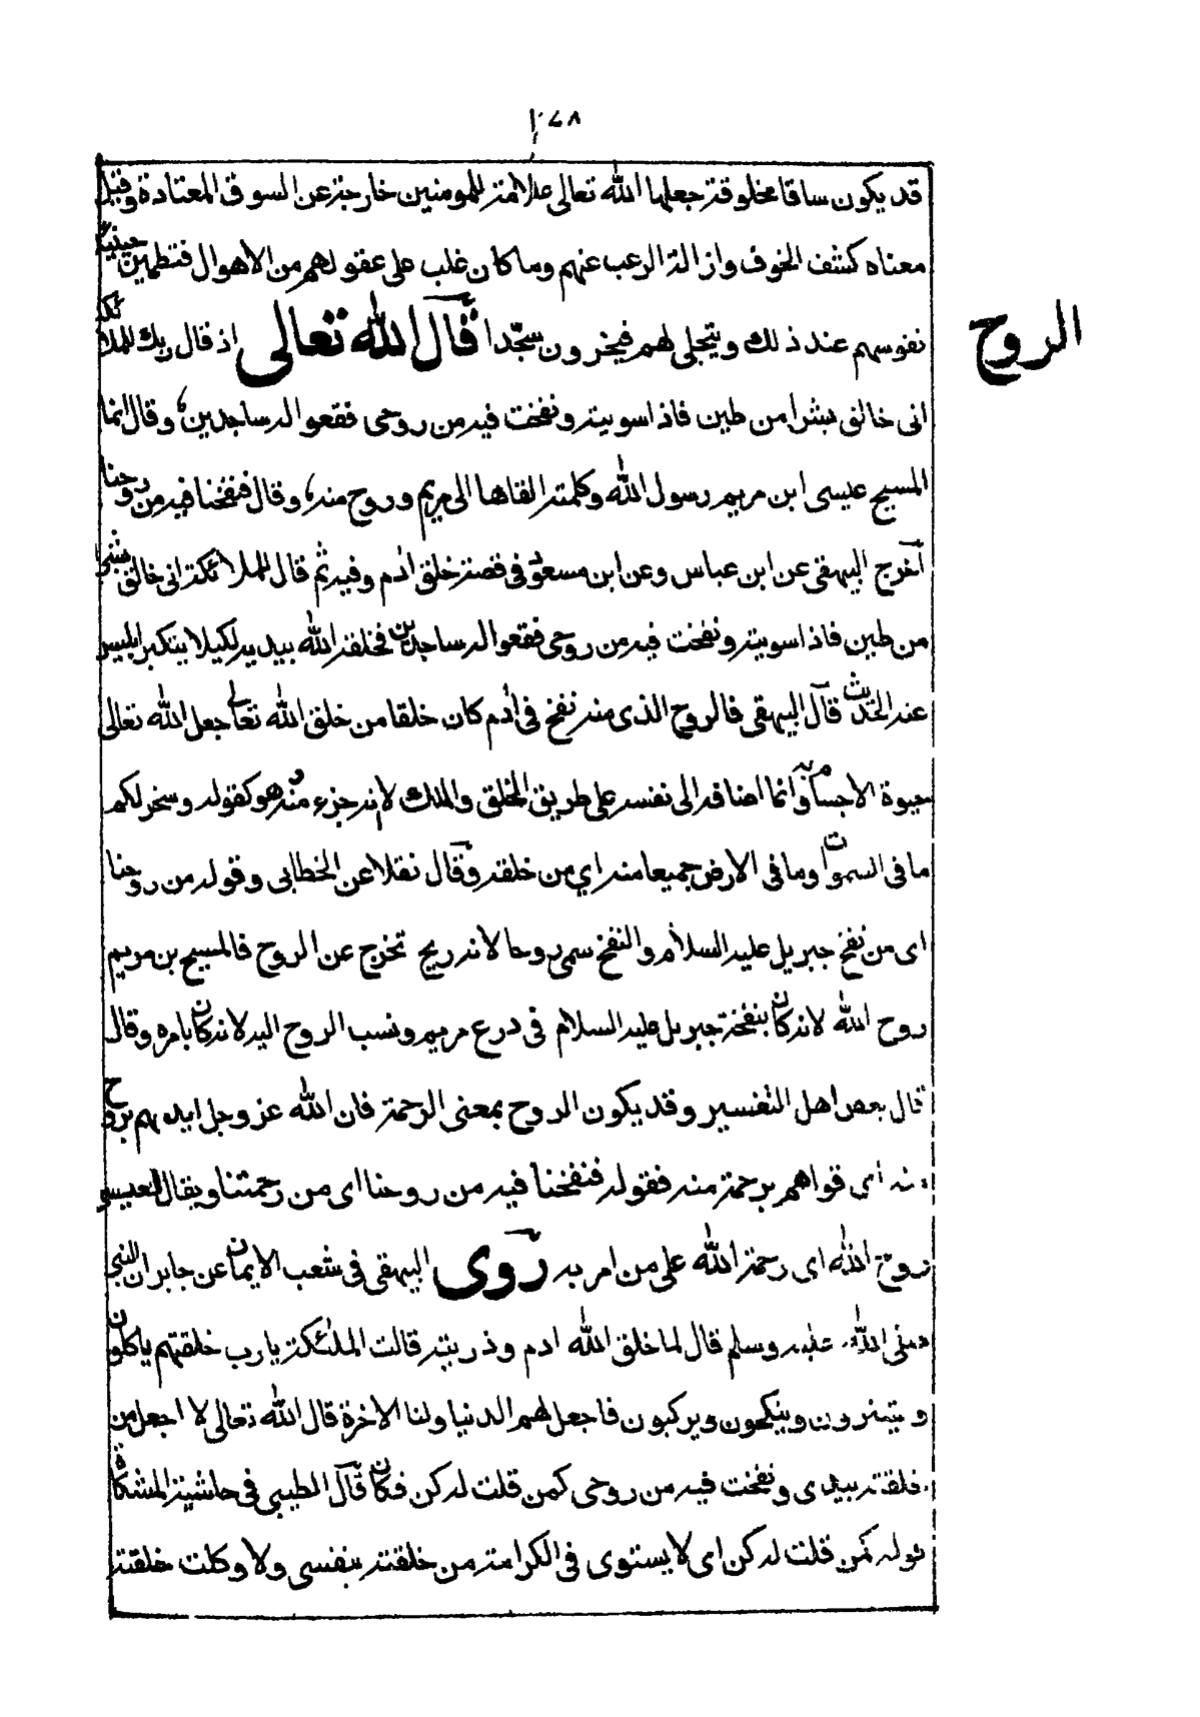 ١٠٧٨
قد يكون ساقا مخلوقة جعلها الله تعالى علامة للمومنين خارجة عن السوق المعتادة وقيل
معناه كشف الخوف وازالة الرعب عنهم وما كان غلب على عقولهم من الاهوال فتطمئن حينئذ
نفوسهم عند ذلك ويتجلى لهم فيخرون سجّدا قال الله تعالى اذ قال ربك للملائكة
الروح
انى خالق بشرا من طين فاذا سويته ونفخت فيه من روحى فقعوا له ساجدين، وقال انما
المسيح عيسى ابن مريم رسول الله وكلمته القاها الى مريم وروح منه، وقال فنفخنا فيه من روحنا
آخرج البيهقى عن ابن عباس وعن ابن مسعود فى قصة خلق ادم وفيه ثم قال للملائكة انى خالق بشرا
من طين فاذا سويته ونفخت فيه من روحى فقعوا له ساجدين فخلقه الله بيديه لكيلا يتكبر ابليس
عنه الحديث قال البيهقى فالروح الذى منه نفخ فى ادم كان خلقا من خلق الله تعالى جعل الله تعالى
حيوة الاجسام به وانما اضافه الى نفسه على طريق الخلق والملك لا انه جزء منه وهو كقوله وسخر لكم
ما فى السموات وما فى الارض جميعا منه اي من خلقه وقال نقلا عن الخطابى وقوله من روحنا
اى من نفخ جبريل عليه السلام والنفخ سمى روحا لانه ريح تخرج عن الروح فالمسيح بن مريم
روح الله لانه كان بنفخة جبريل عليه السلام فى درع مريم ونسب الروح اليه لانه كان بامره وقال
قال بعض اهل التفسير وقد يكون الروح بمعنى الرحمة فان الله عز وجل ايدهم بروح
منه اى قواهم برحمة منه فقوله فنفخنا فيه من روحنا اى من رحمتنا ويقال لعيسى
روح الله اى رحمة الله على من امر به روى البيهقى فى شعب الايمان عن جابر ان النبى
صلى الله عليه وسلم قال لما خلق الله ادم وذريته قالت الملئكة يارب خلقتهم ياكلون
و يشربون وينكحون ويركبون فاجعل لهم الدنيا ولنا الاخرة قال الله تعالى لا اجعل من
خلقته بيدى ونفخت فيه من روحى كمن قلت له كن فكان قال الطيبى فى حاشية المشكاة
قوله كمن قلت له كن اى لا يستوى فى الكرامة من خلقته بنفسى ولا وكلت خلقته